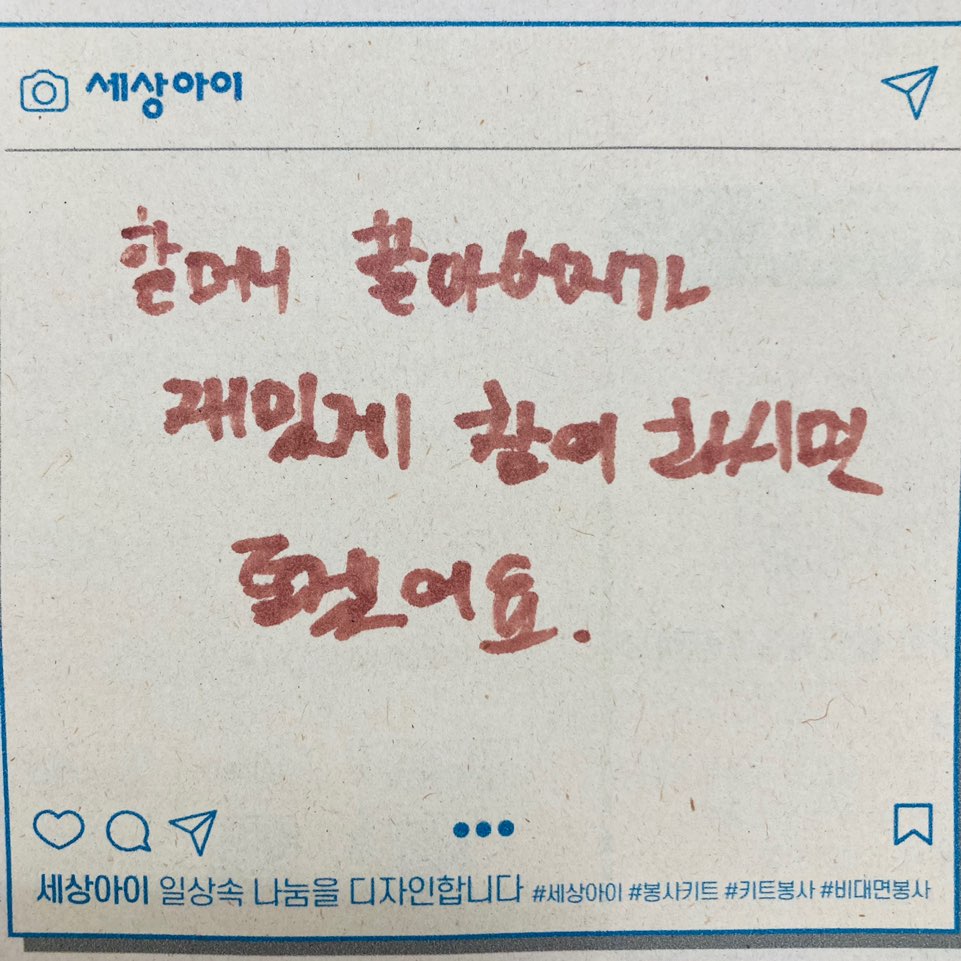 세상아이
할머니 할아버지가
재밌게 참여 하시면
좋겠어요.
세상아이 일상속 나눔을 디자인합니다 #세상아이 #봉사키트 #키트봉사 #비대면봉사